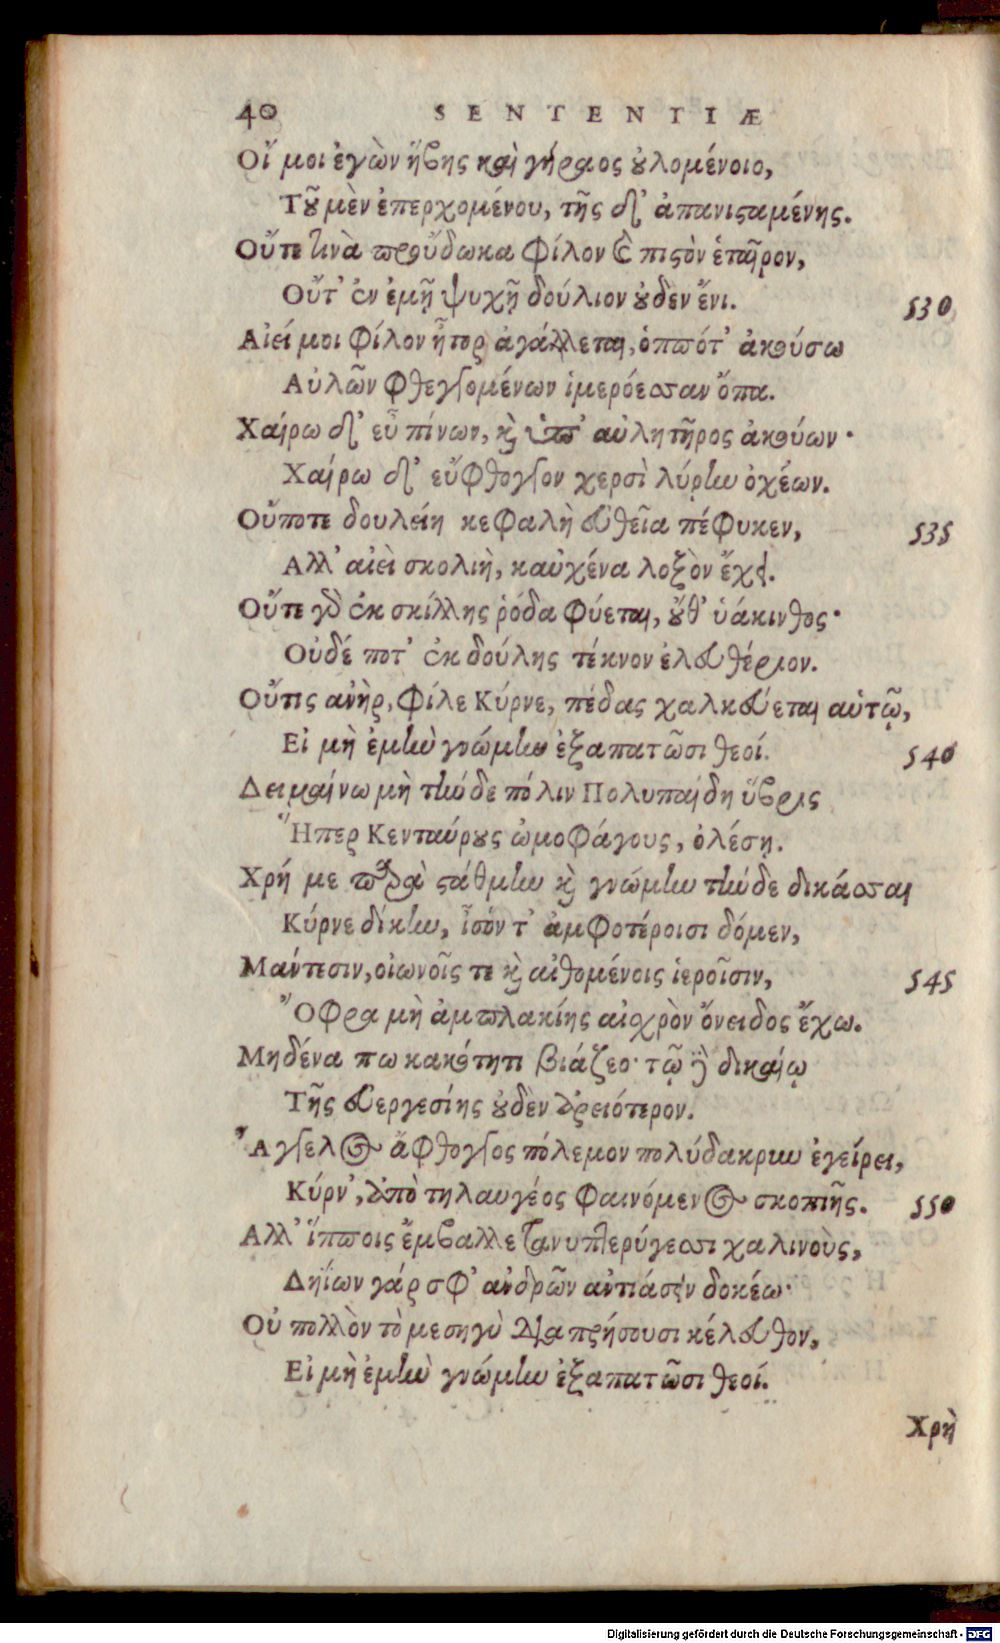 40 SENTENTIÆ
Οἴ μοι ἐγὼν ἥβης καὶ γήραος οὐλομένοιο,
Τοῦ μὲν ἐπερχομένου, τῆς δ' ἀπανισταμένης.
Οὔτε τινὰ προὔδωκα φίλον καὶ πιστὸν ἑταῖρον,
Οὔτ' ἐν ἐμῇ ψυχῇ δούλιον οὐδὲν ἔνι. 530
Αἰεί μοι φίλον ἦτορ ἀγάλλεται, ὁππότ' ἀκούσω
Αὐλῶν φθεγγομένων ἱμερόεσσαν ὄπα.
Χαίρω δ' εὖ πίνων, καὶ ὑπ' αὐλητῆρος ἀκούων·
Χαίρω δ' εὔφθογγον χερσὶ λύρην ὀχέων.
Οὔποτε δουλείη κεφαλὴ εὐθεῖα πέφυκεν, 535
Ἀλλ' αἰεὶ σκολιὴ, καὐχένα λοξὸν ἔχει.
Οὔτε γὰρ ἐκ σκίλλης ῥόδα φύεται, οὔθ' ὑάκινθος·
Οὐδέ ποτ' ἐκ δούλης τέκνον ἐλευθέριον.
Οὔτις ἀνὴρ, φίλε Κύρνε, πέδας χαλκεύεται αὑτῷ,
Εἰ μὴ ἐμὴν γνώμην ἐξαπατῶσι θεοί. 540
Δειμαίνω μὴ τήνδε πόλιν Πολυπαίδη ὕβρις
Ἥπερ Κενταύρους ὠμοφάγους, ὀλέσῃ.
Χρή με παρὰ στάθμην καὶ γνώμην τήνδε δικάσσαι
Κύρνε δίκην, ἶσόν τ' ἀμφοτέροισι δόμεν,
Μάντεσιν, οἰωνοῖς τε καὶ αἰθομένοις ἱεροῖσιν, 545
Ὄφρα μὴ ἀμπλακίης αἰσχρὸν ὄνειδος ἔχω.
Μηδένα πω κακότητι βιάζεο· τῷ δὲ δικαίῳ
Τῆς εὐεργεσίης οὐδὲν ἀρειότερον.
Ἄγγελος ἄφθογγος πόλεμον πολύδακρυν ἐγείρει,
Κύρν', ἀπὸ τηλαυγέος φαινόμενος σκοπιῆς. 550
Ἀλλ' ἵπποις ἔμβαλλε τανυπτερύγεσσι χαλινοὺς,
Δηΐων γάρ σφ' ἀνδρῶν ἀντιάσειν δοκέω·
Οὐ πολλὸν τὸ μεσηγὺ διαπρήσουσι κέλευθον,
Εἰ μὴ ἐμὴν γνώμην ἐξαπατῶσι θεοί.
Χρὴ
Digitalisierung gefördert durch die Deutsche Forschungsgemeinschaft - DFG